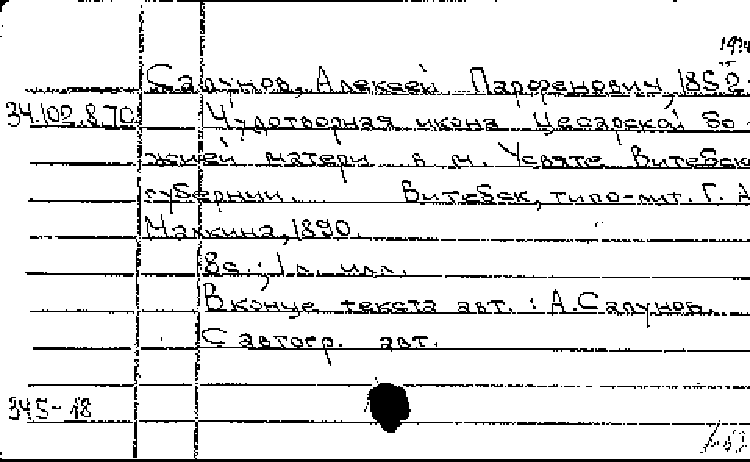 Сапунов, Алексей Парфенович, 1852-
34.102.8.70 Чудотворная икона Цесарской Бо-
жией матери в м. Усвяте Витебск
губернии. Витебск, типо-лит. Г. А.
Малкина, 1890.
8с.; 1 л. илл.
В конце текста авт.: А. Сапунов.
С автогр. авт.
345-18